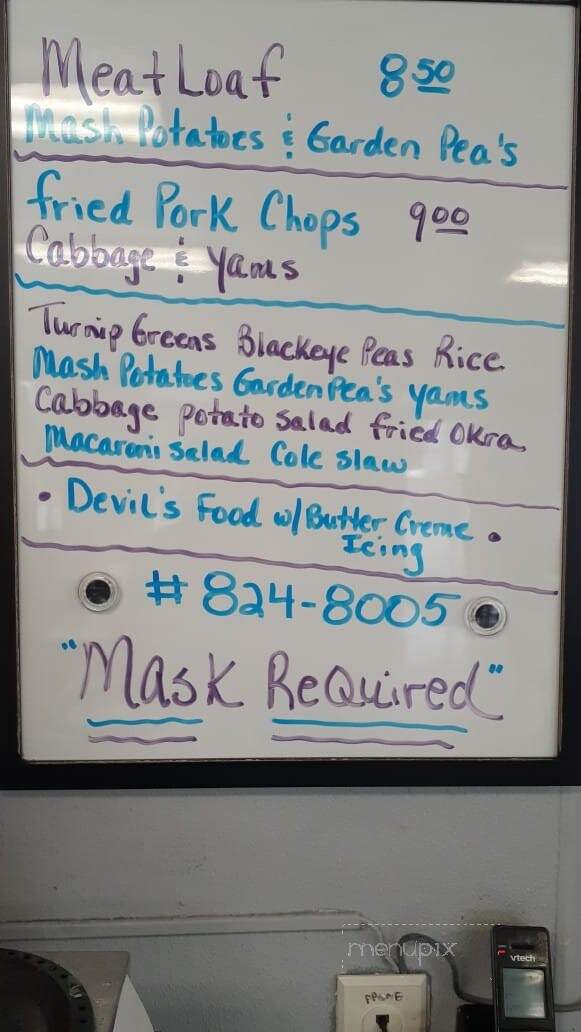 Meat Loaf 8 50
Mash Potatoes & Garden Pea's
fried Pork Chops 9 00
Cabbage & Yams
Turnip Greens Blackeye Peas Rice
Mash Potatoes Garden Pea's yams
Cabbage potato Salad fried Okra
Macaroni Salad Cole Slaw
• Devil's Food w/Butter Creme •
Icing
# 824-8005
"Mask ReQuired"
menupix
vtech
PHONE